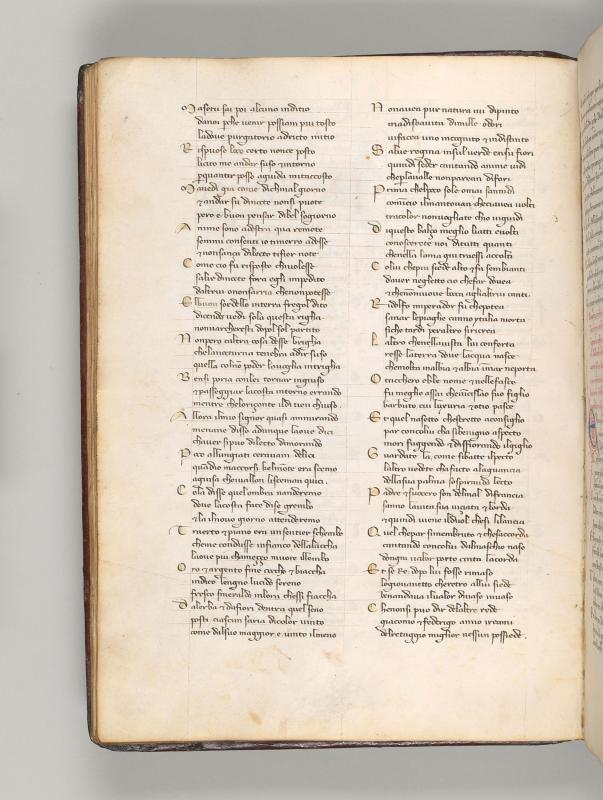 Masetu sai poi alcuno inditio
danoi perche uenir possiam piu tosto
ladoue purgatorio adricto initio
Rispuose loco certo nonce posto
licito me andar suso & intorno
perquanter posso aguida mitaccosto
Mauedi gia come dichinal giorno
& andar su dinocte nonsi puote
pero e buon pensar dibel segiorno
Anime sono adestra qua remote
semmi consenti io timerro adesse
& nonsança dilecto tifier note
Come cio fu risposto chiuolesse
salir dinocte fora egli impedito
daltrui ononsarria chenonpotesse
Elbuon sordello interra fregol dito
dicendo uedi sola questa righa
nonuarcheresti dopol sol partito
Nonpero caltra cosa desse brigha
chelanocturna tenebra adir suso
quella colnon poder lauoglia intrigha
Bensi poria conlei tornar ingiuso
& passeggiar lacosta intorno errando
mentre chelorizonte ildi tien chiuso
Allora ilmio signor quasi ammirando
menane disso adunque laoue dici
chauer sipuo dilecto dimorando
Poco allungiati ceravam delici
quando maccorsi kelmonte era scemo
aguisa cheuallon lisceman quici
Cola disse quelombra nanderemo
doue lacosta face dise grembo
& la ilnouo giorno attenderemo
Traerto & piano era un sentier schembo
chene condusse infianco dellalaccha
laoue piu chameçço muore illembo
Oro & argento fine coccho & biaccha
indico legno lucido sereno
fresco smeralda inlora chessi fiaccha
Dalerba & dafiori dentra quel seno
posti ciascun saria dicolor uinto
come dalsuo maggior e uinto ilmeno
Nonauea pur natura iui dipinto
madisoauita dimille odori
uifacea uno incognito & indistinto
Salue regina insul verde ensu fiori
quindi seder cantando anime uidi
cheperlaualle nonparean difori
Prima chelpoco sole omai sannidi
comincio ilmantouan checiauea uolti
tracolor nonuogliate chio uiguidi
Diquesto balço meglio liatti euolti
conoscerete uoi ditutti quanti
chenella lama giu traessi accolti
Colui chepiu siede alto & fa sembianti
dauer neglecto cio chefar douea
& chenonmoue bocca aglialtrui canti
Ridolfo imperador fu chepotea
sanar lepiaghe canno italia morta
siche tardi peraltro siricrea
Laltro chenellauista lui conforta
resse laterra doue lacqua nasce
chemolta inalbia & albia inmar neporta
Otacchero ebbe nome & nellefasce
fu meglio assai cheuicislao suo figlio
barbuto cui luxuria & otio pasce
Et quel nasetto chestretto aconsiglio
par concolui cha sibenigno aspecto
mori fuggendo & disfiorando ilgiglio
Guardate la come sibatte ilpecto
laltro uedete cha facto alaguancia
dellasua palma sospirando lecto
Padre & suocero son delmal difrancia
sanno lauita sua uiçiata & lorda
& quindi uiene ilduol chesi lilancia
Quel chepar simembruto & chesaccorda
cantando concolui dalmaschio naso
dongni ualor porto cinta lacorda
Et se Re dopo lui fosse rimaso
logiouanetto cheretro allui siede
benandaua ilualor diuaso inuaso
Chenonsi puo dir delaltre rede
giacomo & federigo anno ireami
delretaggio miglior nessun possiede.